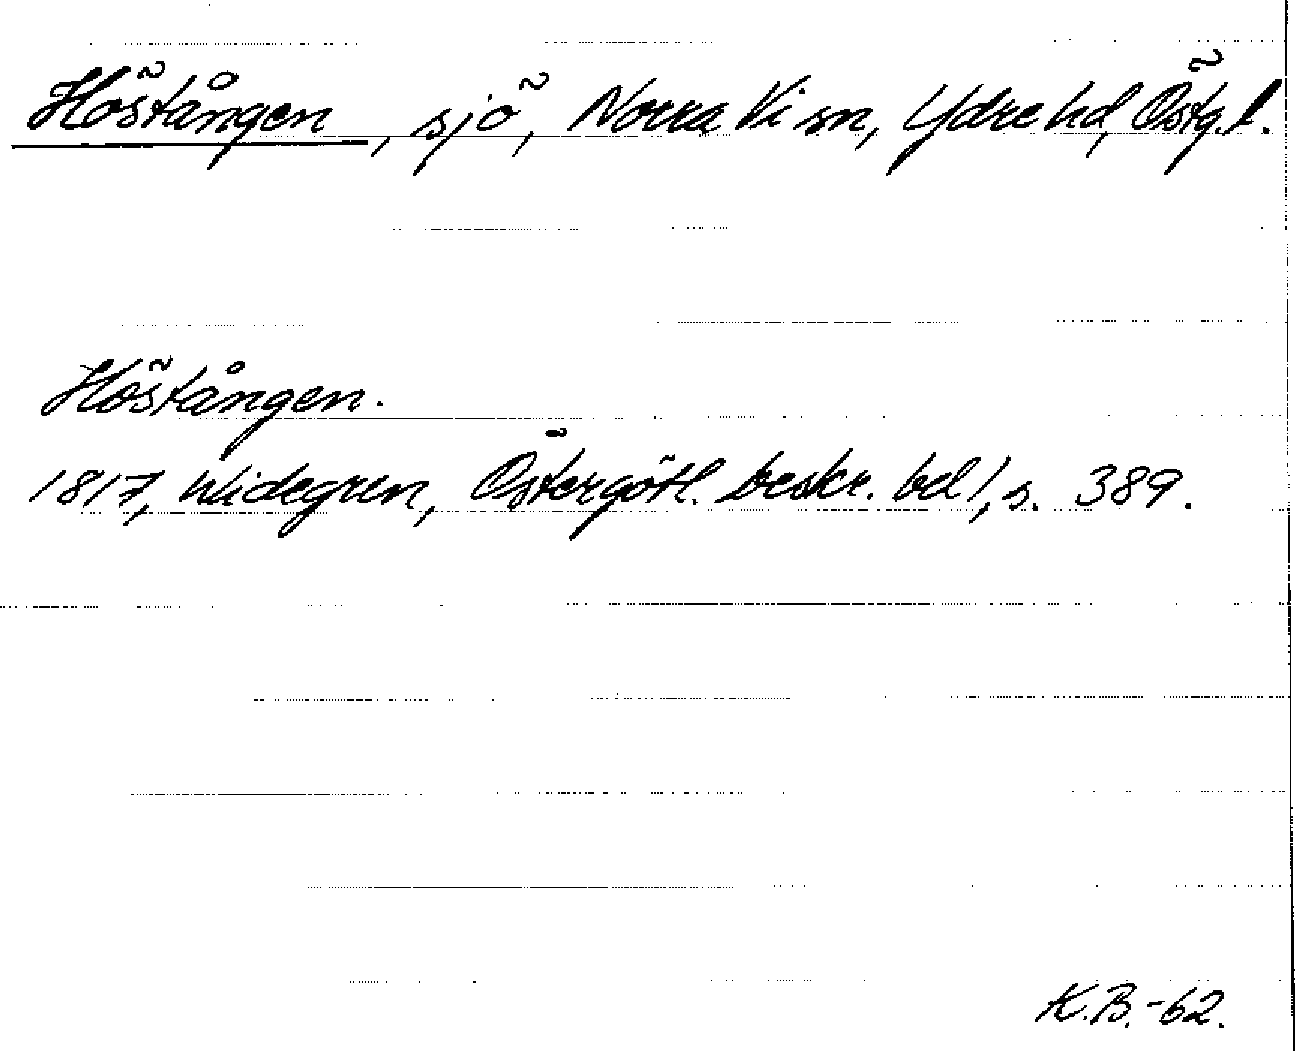 Höstången, sjö, Norra Vi sn, Ydre hd, Östg. l.
Höstången.
1817, Widegren, Östergötl. beskr. bd 1, s. 389.
K.B. -62.